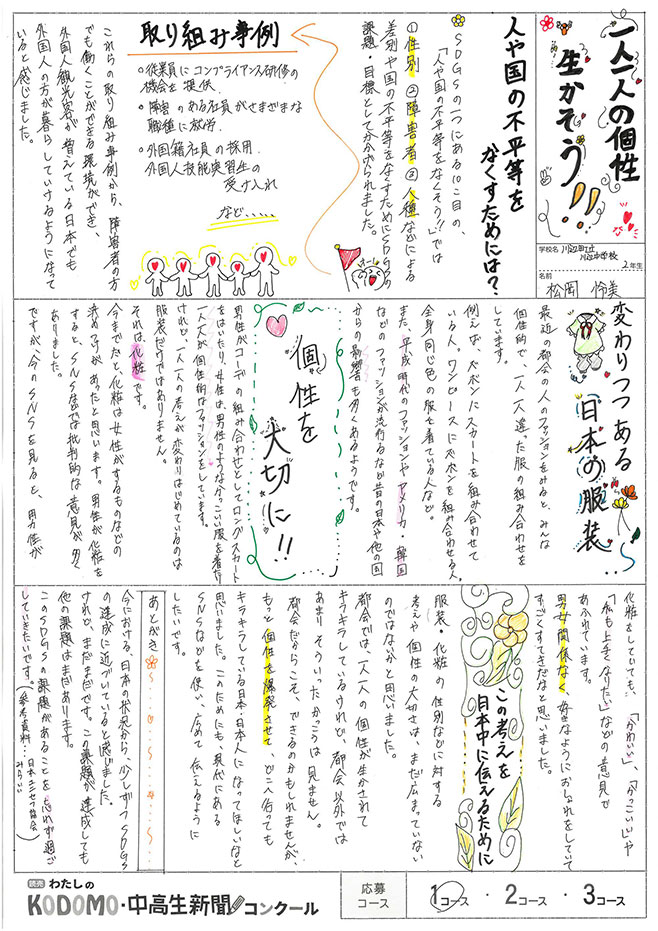 一人一人の個性
生かそう!!
学校名 川辺町立
川辺中学校
2年生
名前
松岡 怜美
人や国の不平等を
なくすためには?
SDGSの一つにある10こ目の、
「人や国の不平等をなくそう!!」では
①性別 ②障害者 ③人種などによる
差別や国の不平等をなくすためにSDGSの
課題・目標として分けられました。
取り組み事例
○従業員にコンプライアンス研修の
機会を提供
・障害のある社員がさまざまな
職種に就労
・外国籍社員の採用
外国人技能実習生の
受け入れ
など……
これらの取り組み事例から、障害者の方
でも働くことができる環境ができ、
外国人観光客が増えている日本でも
外国人の方が暮らしていけるようになって
いると感じました。
変わりつつある
日本の服装…
最近の都会の人のファッションをみると、みんな
個性的で、一人一人違った服の組み合わせを
しています。
例えば、ズボンにスカートを組み合わせて
いる人。ワンピースにズボンを組み合わせる人。
全身同じ色の服を着ている人など。
また、平成時代のファッションやアメリカ・韓国
などのファッションが流行るなど昔の日本や他の国
からの影響も多くあるようです。
個性を
大切に!!
男性がコーデの組み合わせとしてロングスカート
をはいたり、女性は男性のようなかっこいい服を着たり
一人一人が個性的なファッションをしています。
けれど、一人一人の考えが変わりはじめているのは
服装だけではありません。
それは、化粧です。
今までだと、化粧は女性がするものなどの
決めつけがあったと思います。男性が化粧を
すると、SNSなどでは批判的な意見が多く
ありました。
ですが、今のSNSを見ると、男性が
化粧をしていても、「かわいい」、「かっこいい」や
「私も上手くなりたい」などの意見で
あふれています。
男女関係なく、好きなようにおしゃれをしていて
すごくすてきだなと思いました。
この考えを
日本中に伝えるために
服装・化粧の性別などに対する
考えや個性の大切さは、まだ広まっていない
のではないかと思いました。
都会では、一人一人の個性が生かされて
キラキラしているけれど、都会以外では
あまりそういったかっこうは見ません。
都会だからこそ、できるのかもしれませんが、
もっと個性を爆発させて、どこへ行っても
キラキラしている日本・日本人になってほしいなと
思いました。このためにも、現代にある
SNSなどを使い、広めて伝えるように
したいです。
あとがき
今における、日本の状況から、少しずつSDGS
の達成に近づいていると感じました。
けれど、まだまだです。この課題が達成しても
他の課題はまだあります。
このSDGSの課題があることを忘れず過ご
していきたいです。
(参考資料:日本ユニセフ協会
みらい)
読売 わたしの
KODOMO・中高生新聞コンクール
応募
コース
1コース ・ 2コース ・ 3コース